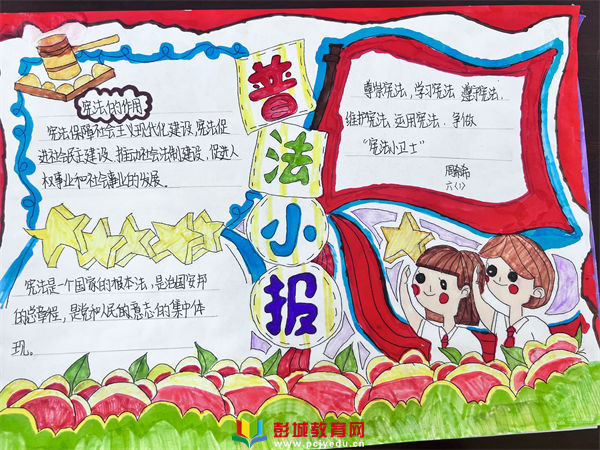 普法小报
宪法的作用
宪法保障社会主义现代化建设,宪法促
进社会民主建设、推动社会法制建设,促进人
权事业和社会事业的发展。
宪法是一个国家的根本法,是治国安邦
的总章程,是党和人民的意志的集中体
现。
尊崇宪法,学习宪法,遵守宪法,
维护宪法,运用宪法,争做
“宪法小卫士”
六(1)
彭城教育网
www.pcjyedu.cn